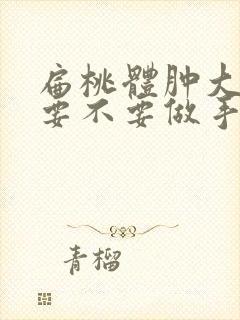 扁桃體肿大
要不要做手
青榴